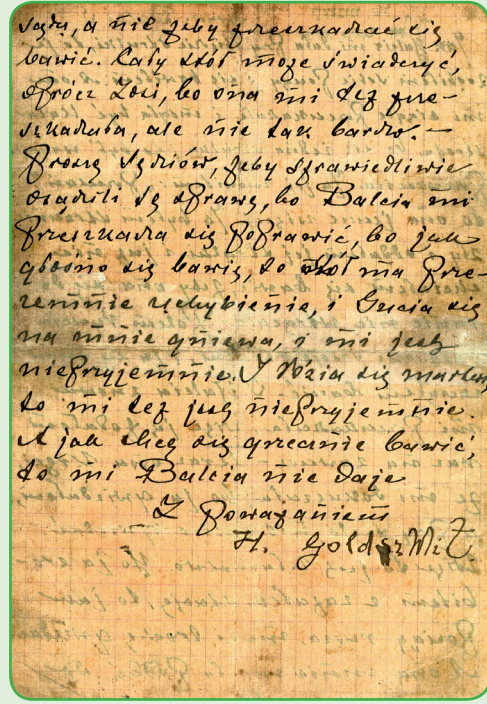 sądu, a nie żeby przeszkadzać się
bawić. Cały stół może świadczyć,
oprócz Zosi, bo ona mi też prze-
szkadzała, ale nie tak bardzo. —
Proszę sędziów, żeby sprawiedliwie
osądzili tę sprawę, bo Balcia mi
przeszkadza się poprawić, bo jak
głośno się bawię, to stół ma prze-
zemnie uchybienie, i Gucia się
na mnie gniewa, i mi jest
nieprzyjemnie. I Rózia się martwi,
to mi też jest nieprzyjemnie.
A jak chcę się grzecznie bawić,
to mi Balcia nie daje
Z poważaniem
H. Goldszmit